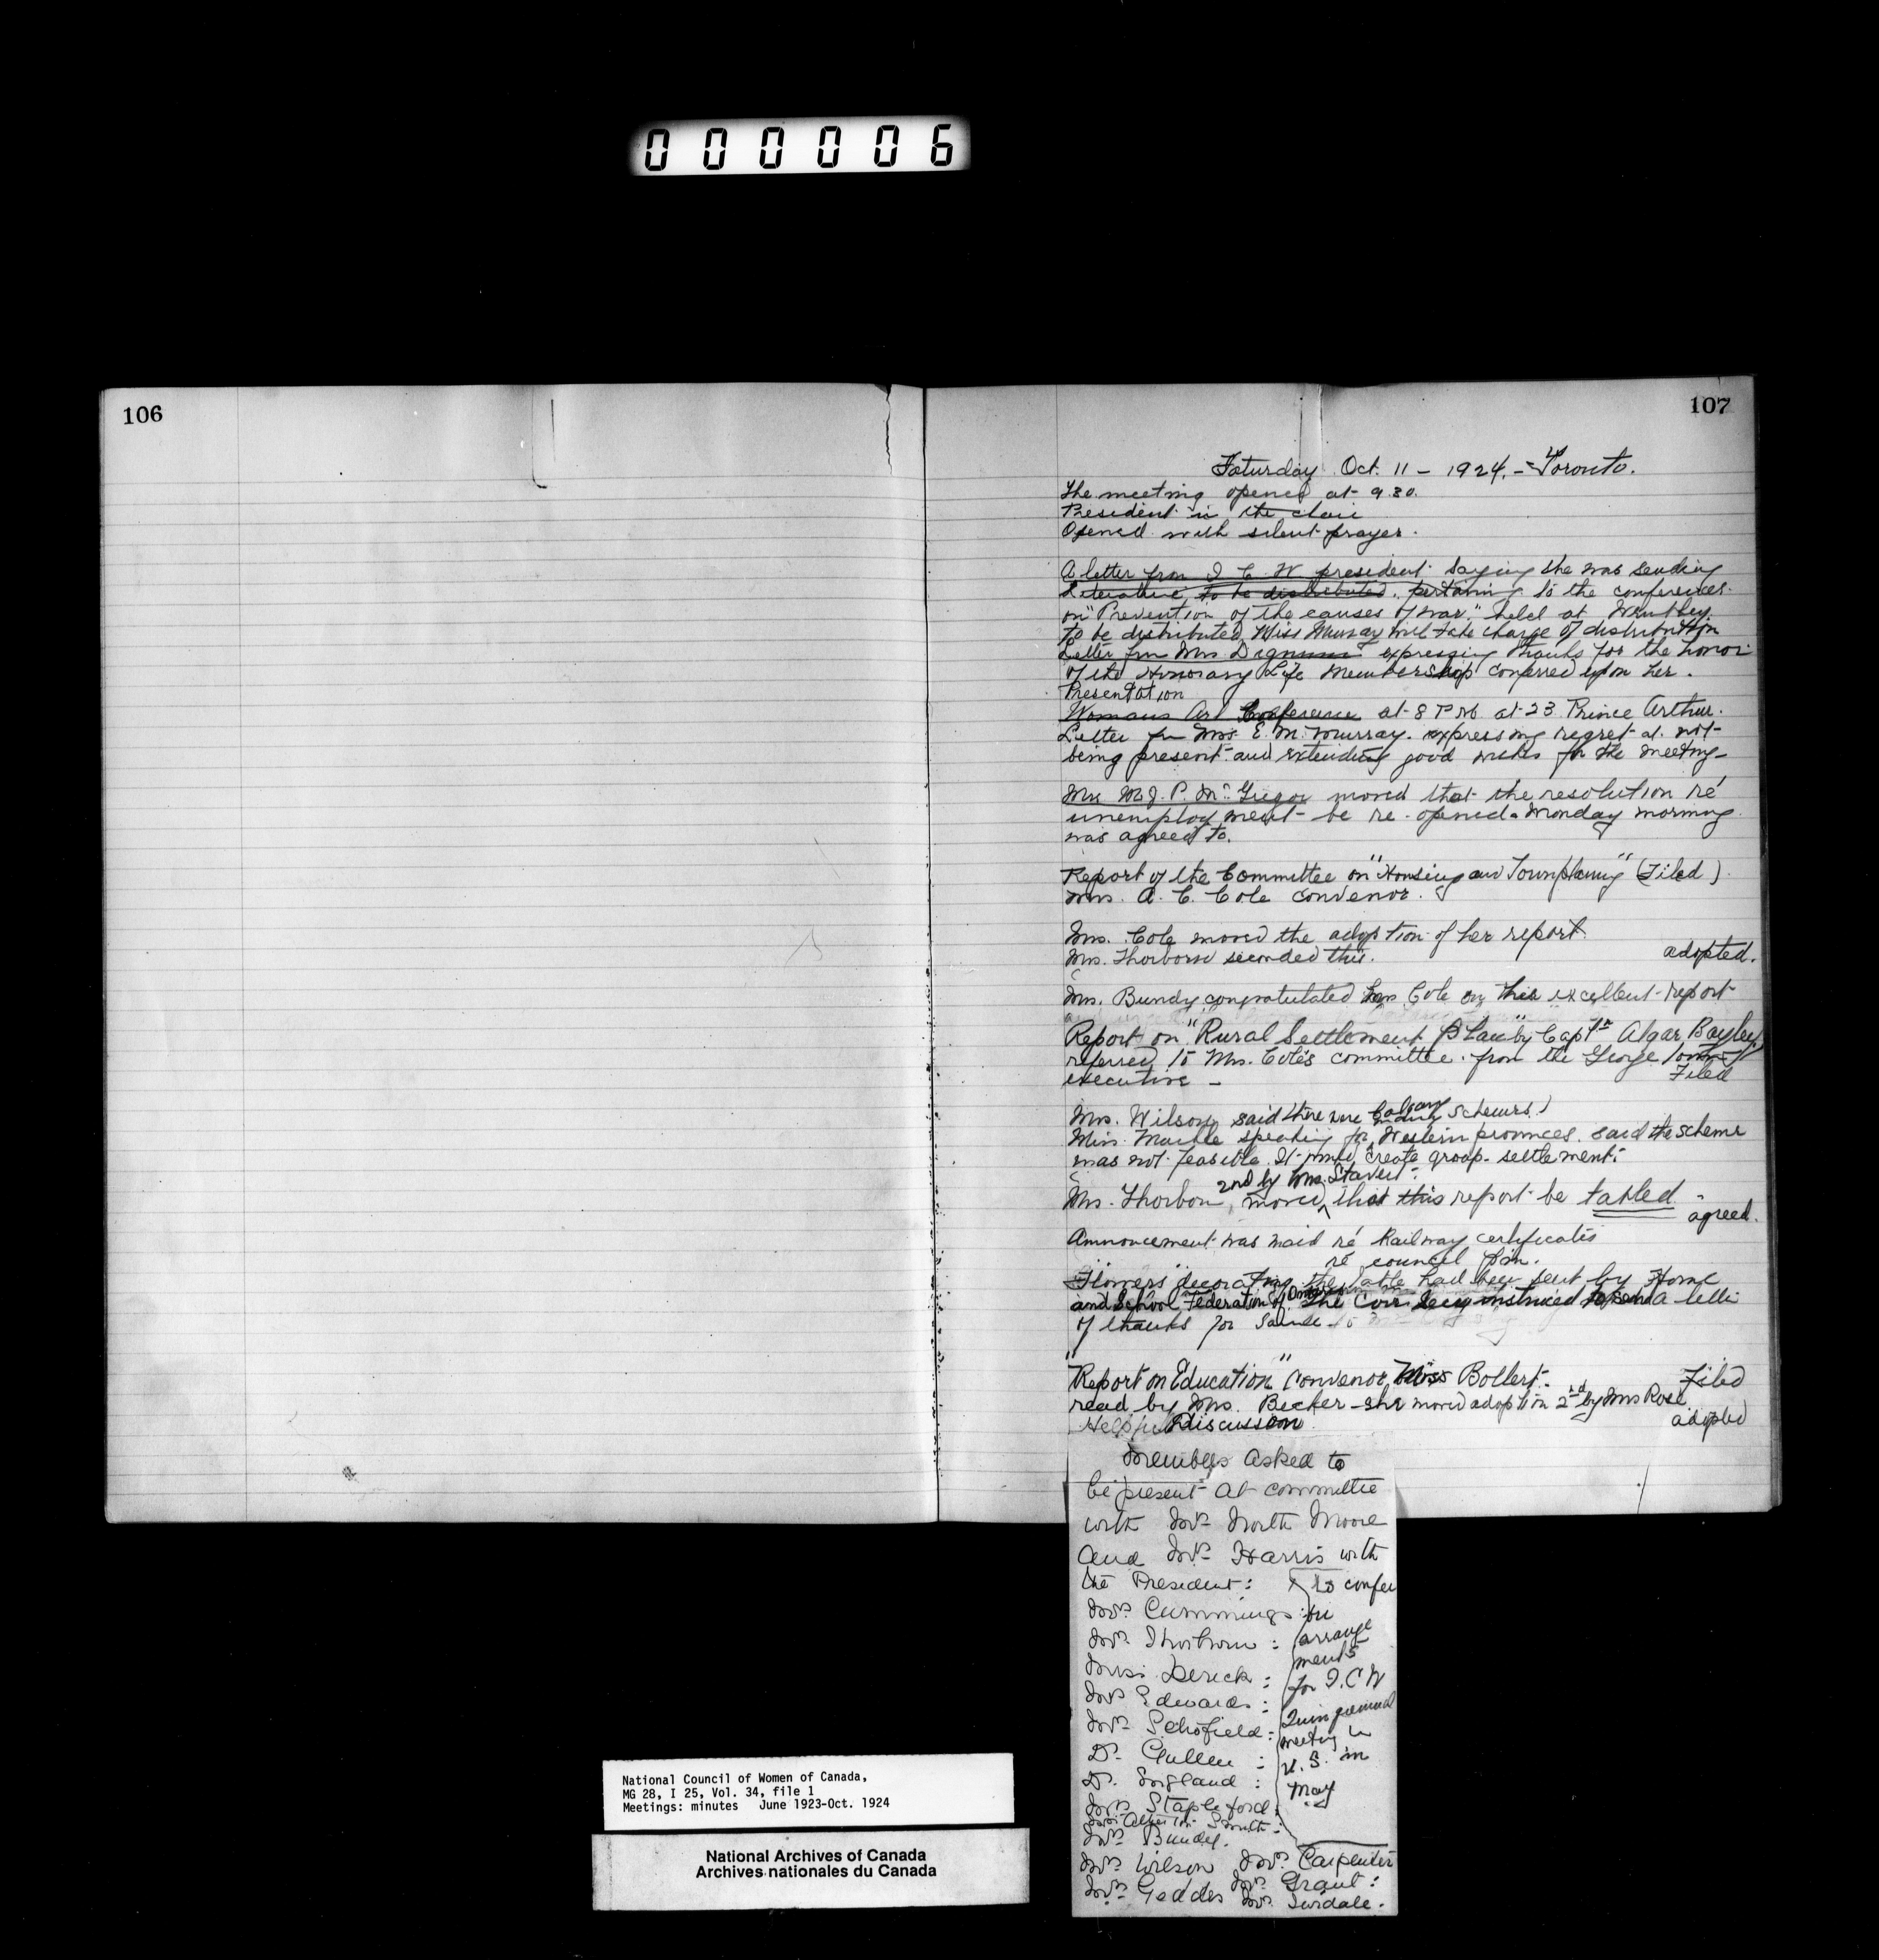 000006
106
107
Saturday Oct. 11 - 1924. - Toronto.
The meeting opened at 9.30.
President in the chair
Opened with silent prayer.
A letter from I C W president saying she was sending
Literature to be distributed. pertaining to the conferences
on "Prevention of the causes of war." held at Wembley
to be distributed, Miss Murray will take charge of distribution
Letter from Mrs Dignum expressing thanks for the honor
of the Honorary Life Membership conferred upon her.
Presentation
Womans Art Conference at 8 P M at 23 Prince Arthur.
Letter fm Mrs E. M. Murray. expressing regret at not
being present and extending good wishes for the meeting-
moved that the resolution ré
unemployment be re-opened Monday morning
was agreed to.
Report of the Committee on "Housing and Townplanning" (Filed)
Mrs. A. C. Cole convenor.
Mrs. Cole moved the adoption of her report.
Mrs. Thorborn seconded this.
adopted.
Mrs. Bundy congratulated Mrs Cole on this excellent report
Report on "Rural Settlement Plan" by Captn Algar Bayley
referred to Mrs. Cole's committee. from the George
executive -
Filed
Calgary
Mrs. Wilson said there were many schemes
Miss speaking for Western provinces. said the scheme
was not feasible. It would create group settlement.
2nd by Mrs. Stavert.
Mrs. Thorborn, moved that this report be tabled.
agreed.
Announcement was maid ré Railway certificates
ré council pin.
"Flowers" decorating the table had been sent by Home
and School Federation of Ontario The Corr. Secy instructed to send a letter
of thanks for same
"Report on Education" Convenor Miss Bollert.
Filed
read by Mrs. Becker - she moved adoption 2nd by Mrs Rose
adopted
Helpful Discussion
Members asked to
be present at committee
with Mrs North Moore
and Mrs Harris with
the President:
to confer
on
arrange
ments
for I.C W
Quinquennial
meeting in
U.S. in
May
Mrs Cummings:
Mrs. Thorborn:
Miss Derick:
Mrs Edwards:
Mrs. Schofield:
Dr. Gullen:
Dr. England:
Mrs. Stapleford:
Smith:
Mrs. Bundy.
Mrs. Wilson Mrs. Carpenter
Mrs. Grant:
Mrs. Geddes Mrs. Tisdale.
National Council of Women of Canada,
MG 28, I 25, Vol. 34, file 1
Meetings: minutes June 1923-Oct. 1924
National Archives of Canada
Archives nationales du Canada